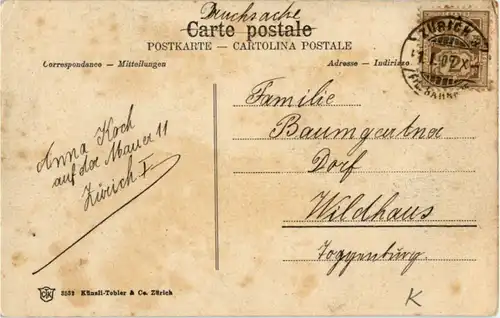 Drucksache
Carte postale
POSTKARTE – CARTOLINA POSTALE
Correspondance – Mitteilungen
Adresse – Indirizzo
ZÜRICH
Familie
Baumgartner
Dorf
Wildhaus
Toggenburg.
Anna Koch
auf der Mauer 11
Zürich I
K
3532 Künzli-Tobler & Co. Zürich